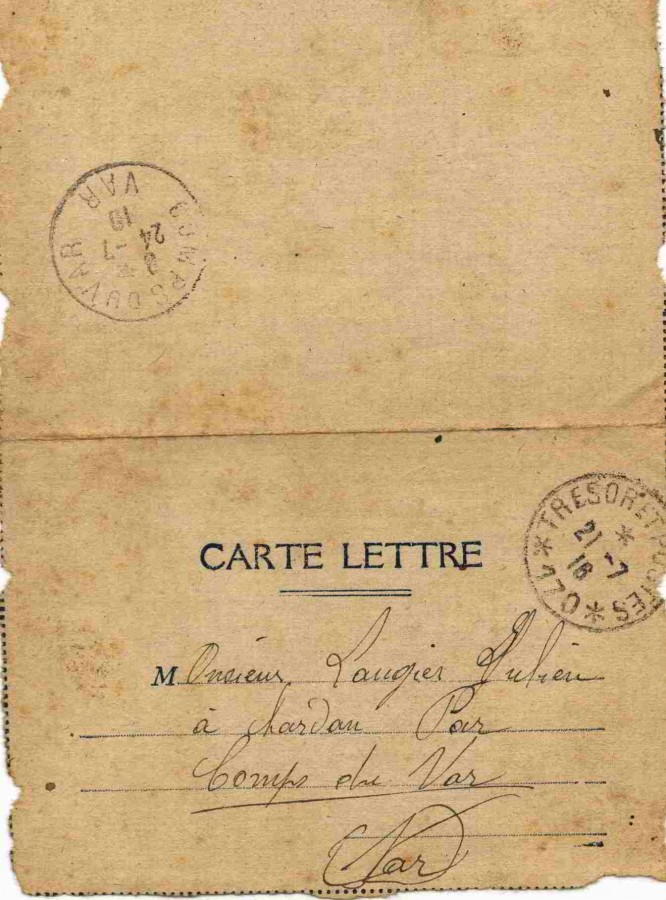 COMPS DU VAR
VAR
8
24 -7
16
CARTE LETTRE
TRESOR ET POSTES
21 -7
16
Monsieur Laugier Julien
à Par
Comps du Var
Var